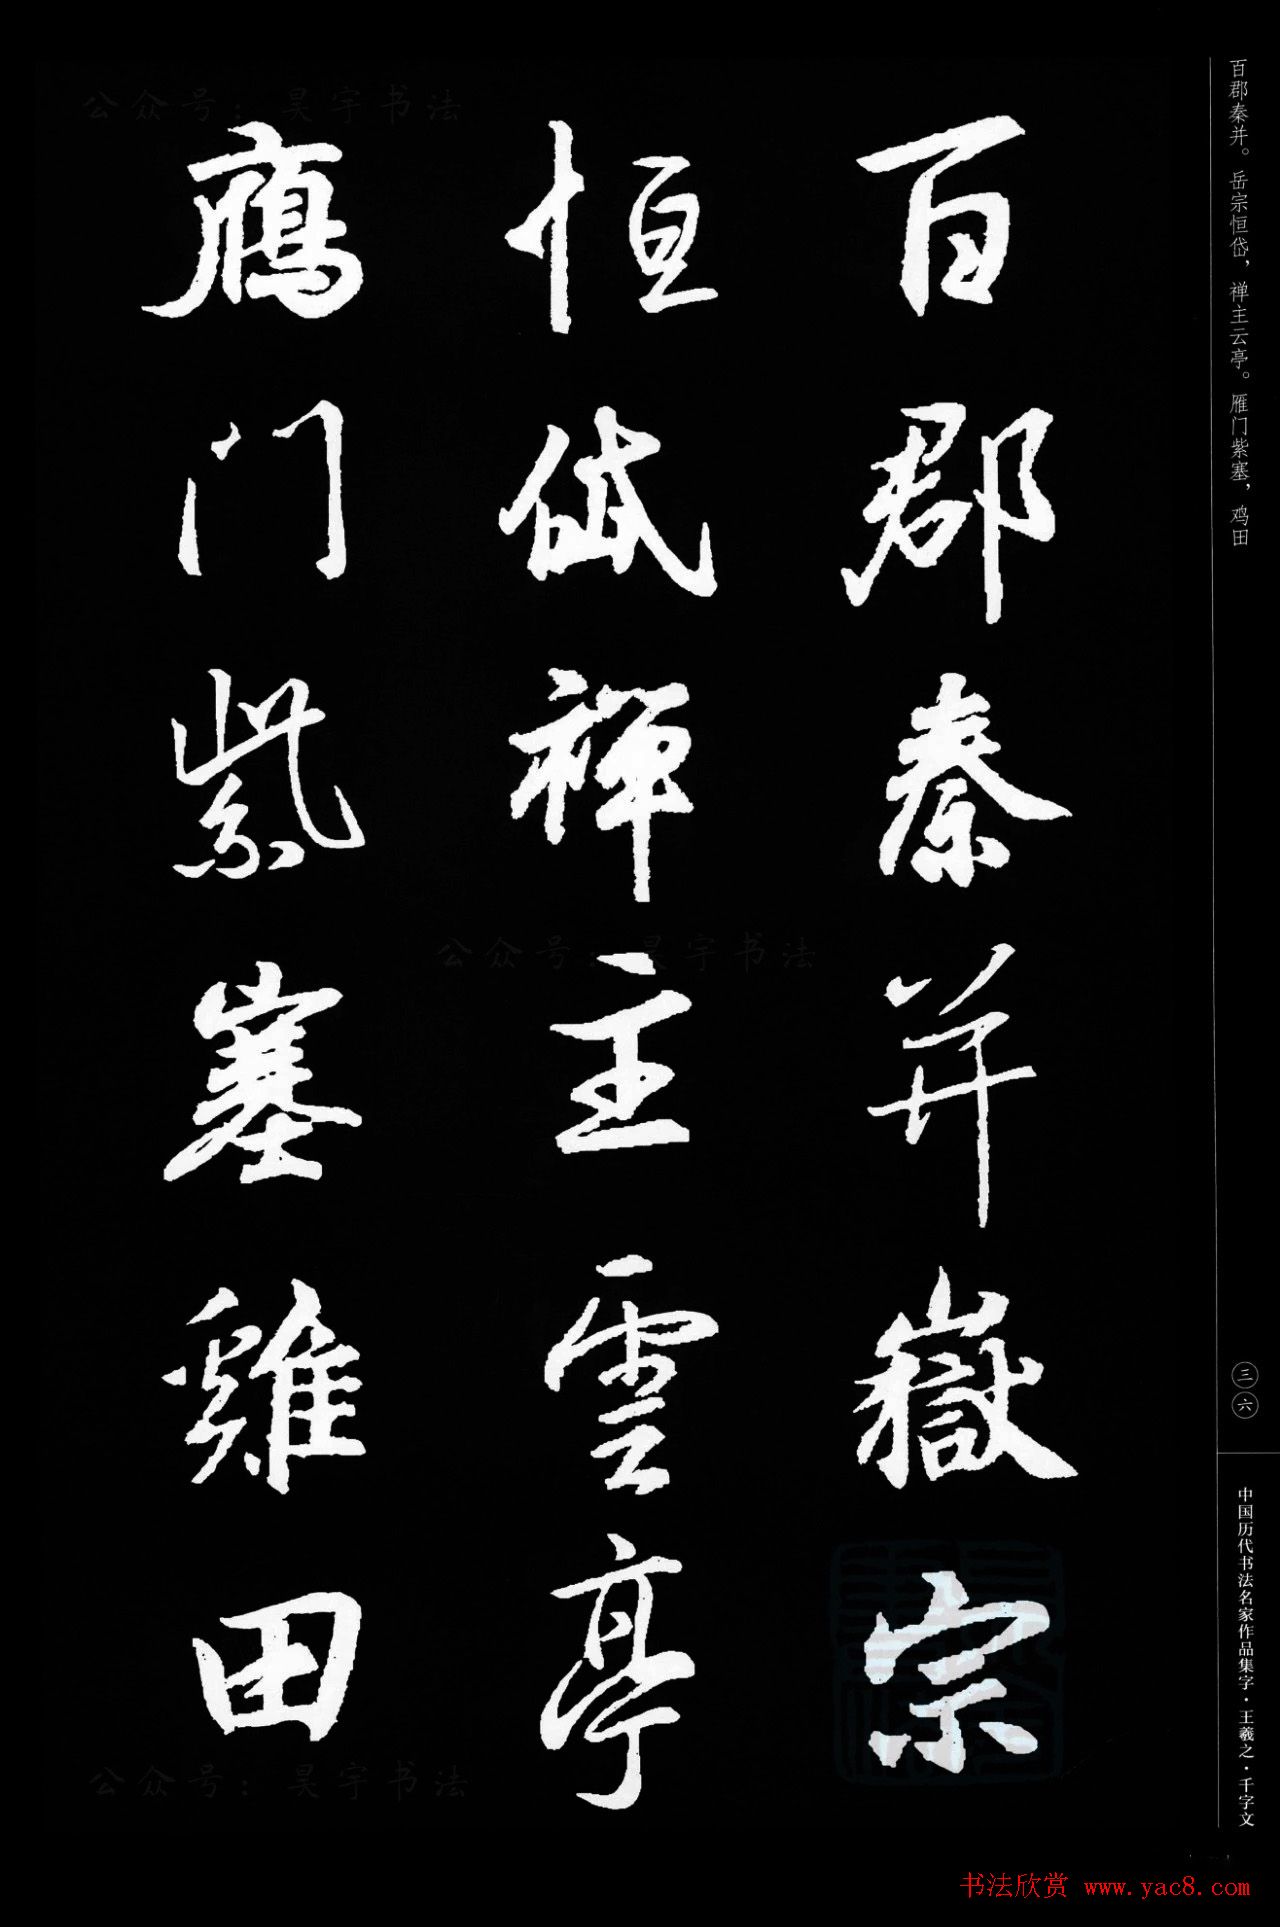 百郡秦并嶽宗
恒岱禪主雲亭
鴈门紫塞雞田
百郡秦并。岳宗恒岱，禅主云亭。雁门紫塞，鸡田
三六
中国历代书法名家作品集字·王羲之·千字文
公众号：昊宇书法
公众号：昊宇书法
公众号：昊宇书法
书法欣赏 www.yac8.com